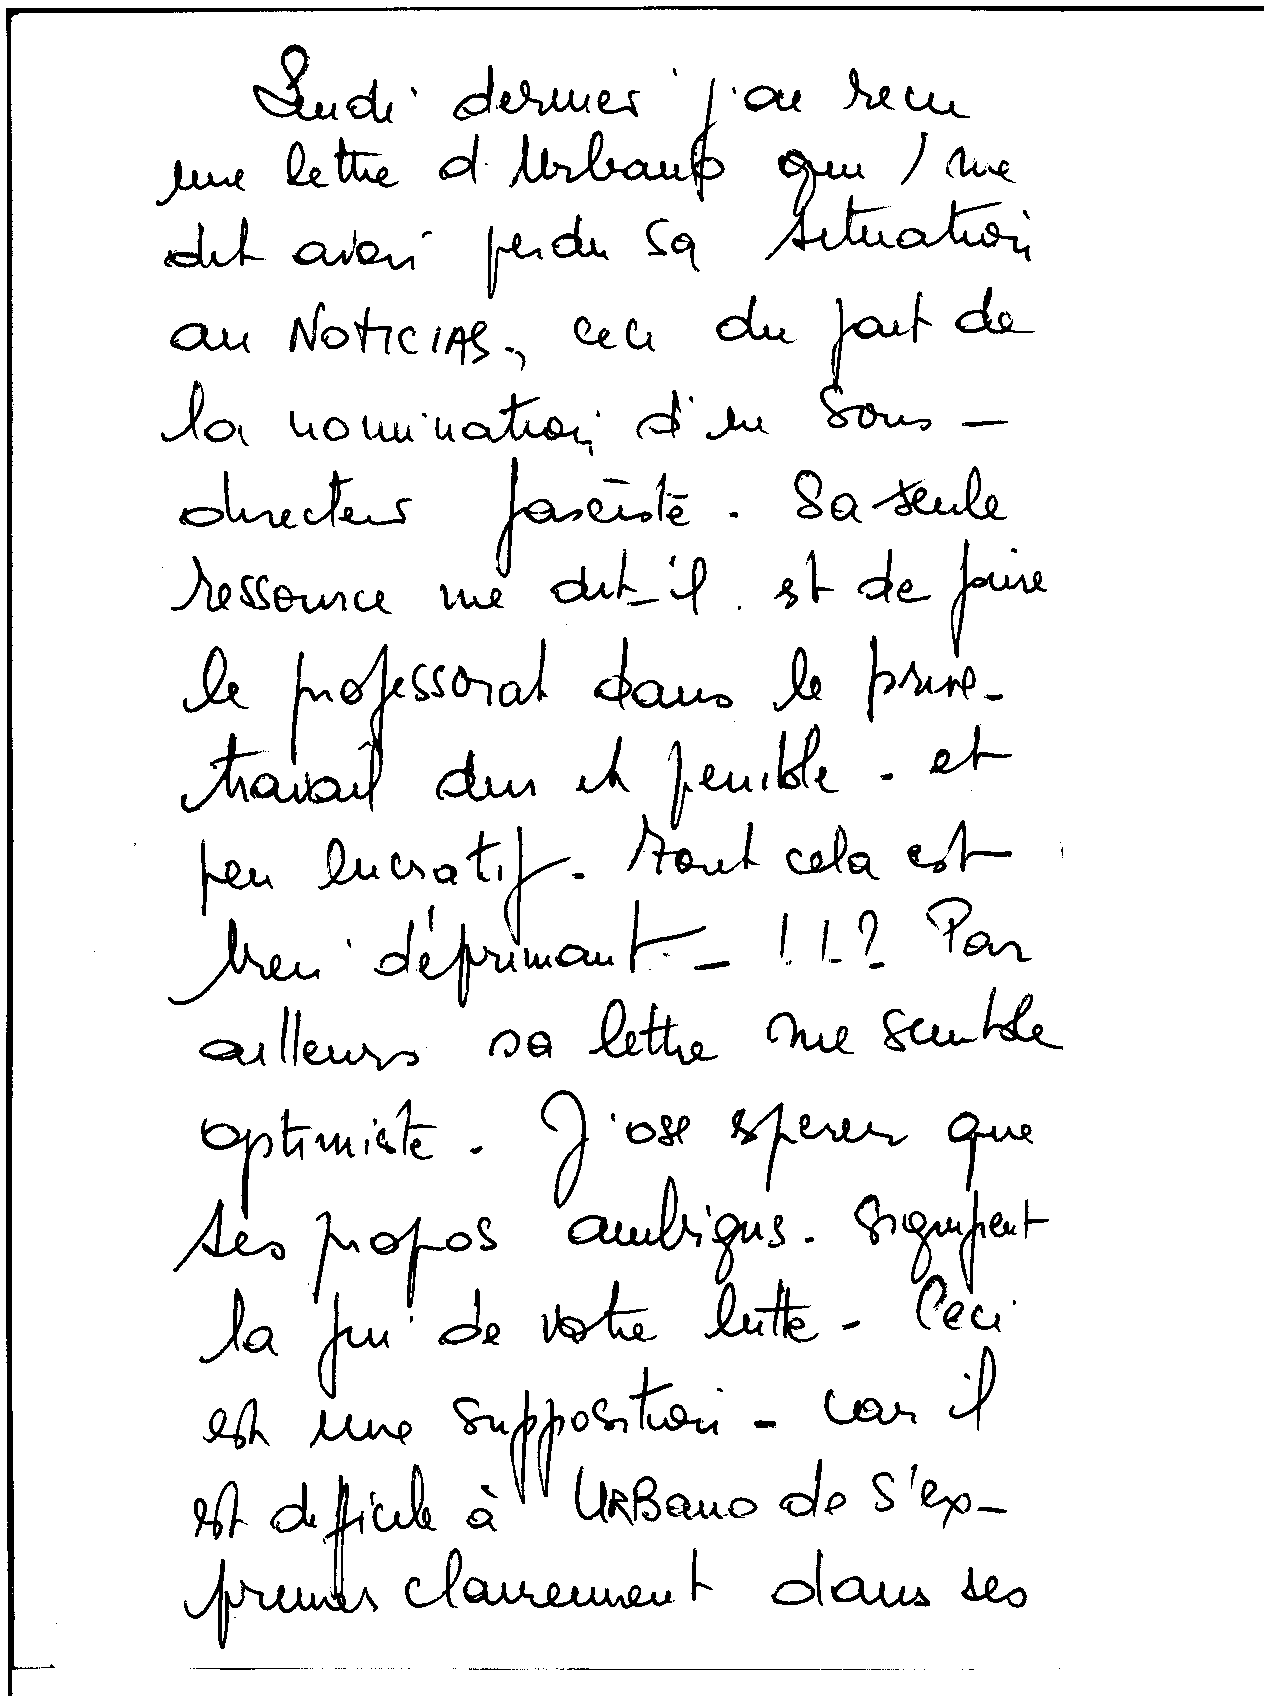 Lundi dernier j'ai recu
une lettre d'Urbano qui me
dit avoir perdu sa situation
au NOTICIAS, ceci du fait de
la nomination d'un sous-
directeur fasciste. Sa seule
ressource me dit-il. est de faire
le professorat dans le privé-
travail dur et penible - et
peu lucratif. Tout cela est
bien déprimant - !!? Par
ailleurs sa lettre me semble
optimiste. J'ose esperer que
ses propos ambigus. signifient
la fin de votre lutte - Ceci
est une supposition - car il
est difficile à URBano de s'ex-
primer clairement dans ses